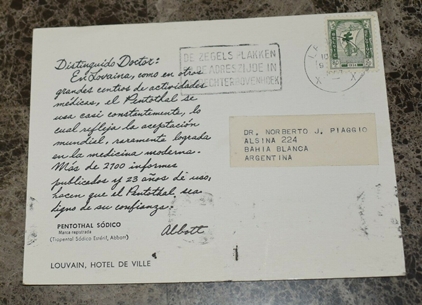 Distinguido Doctor:
En Lovaina, como en otros
grandes centros de actividades
médicas, el Pentothal se
usa casi constantemente, lo
cual refleja la aceptación
mundial, raramente lograda
en la medicina moderna.
Más de 2700 informes
publicados y 23 años de uso,
hacen que el Pentothal sea
digno de su confianza.
Abbott
PENTOTHAL SÓDICO
Marca registrada
(Tiopental Sódico Estéril, Abbott)
LOUVAIN, HOTEL DE VILLE
DE ZEGELS PLAKKEN
ADRESZIJDE IN
RECHTERBOVENHOEK
X X
DR. NORBERTO J. PIAGGIO
ALSINA 224
BAHIA BLANCA
ARGENTINA